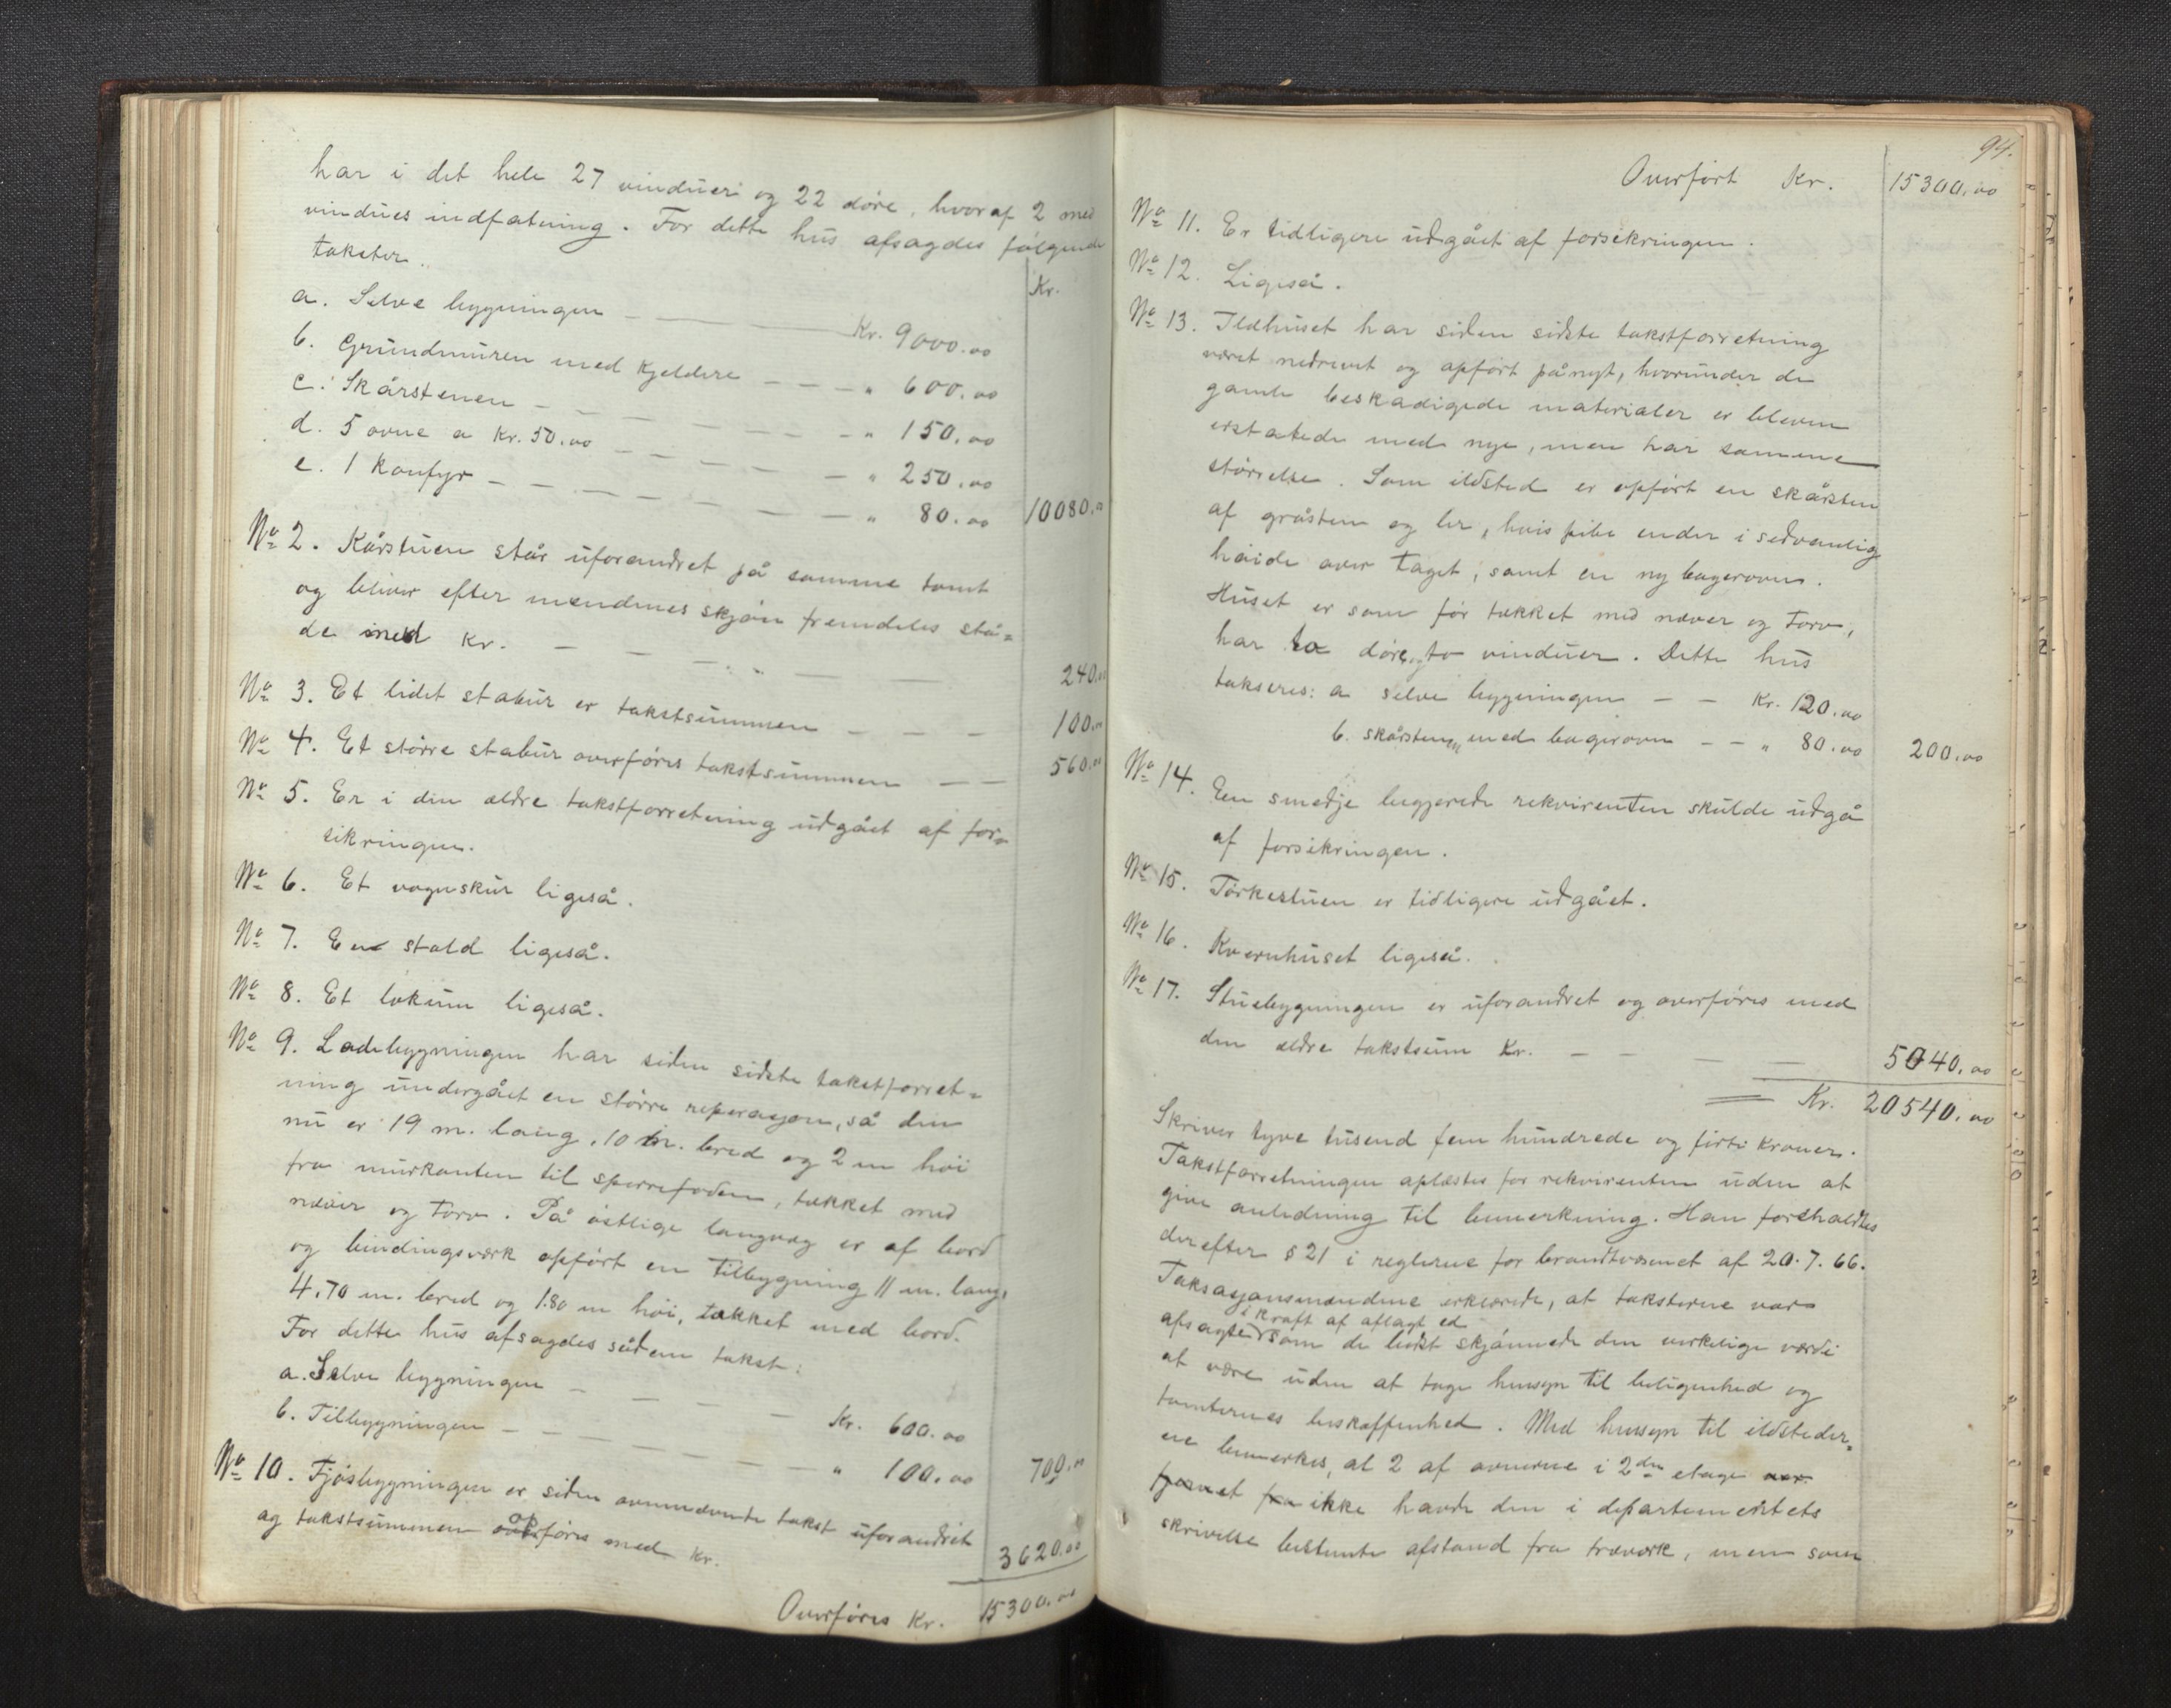 har i det hele 27 vinduer og 22 døre, hvoraf 2 med
vindues indfatning. For dette hus afsagdes følgende
takster.
Kr.
a. Selve bygningen — — Kr. 9000.00
b. Grundmuren med kjeldere — — — " 600.00
c. Skårstenen — — — — — " 150.00
d. 5 ovne a Kr. 50.00 — — — — " 250.00
e. 1 Komfyr — — — — — — " 80.00 10080.00
No 2. Kårstuen står uforandret på samme tomt
og bliver efter mændenes skjøn fremdeles stå=
de med Kr. — — — — — 240.00
No 3. Et lidet stabur er takstsummen — — — 100.00
No 4. Et større stabur overføres takstsummen — — 560.00
No 5. Er i den ældre takstforretning udgået af for=
sikringen.
No 6. Et vognskur ligeså.
No 7. En stald ligeså.
No 8. Et lokum ligeså.
No 9. Ladebygningen har siden sidste takstforret=
ning undergået en større reperasjon, så den
nu er 19 m. lang, 10 m. bred og 2 m høi
fra murkanten til sperrefoden, tækket med
næver og torv. På østlige langvæg er af bord
og bindingsværk opført en tilbygning 11 m. lang,
4.70 m. bred og 1.80 m høi, tækket med bord.
For dette hus afsagdes sådan takst:
a. Selve bygningen — — — — Kr. 600.00
b. Tilbygningen — — — — — — " 100.00 700.00
No 10. Fjøsbygningen er siden ovennævnte takst uforandret
og takstsummen opføres med Kr. 3620.00
Overføres Kr. 15300.00
94.
Overført Kr. 15300.00
No 11. Er tidligere udgået af forsikringen.
No 12. Ligeså.
No 13. Ildhuset har siden sidste takstforretning
været nedrevet og opført pånyt, hvorunder de
gamle beskadigede materialer er bleven
erstatede med nye, men har samme
størrelse. Som ildsted er opført en skårsten
af gråsten og ler, hvis pibe ender i sedvanlig
høide over taget, samt en ny bagerovn.
Huset er som før tækket med næver og torv,
har to døre og to vinduer. Dette hus
takseres: a selve bygningen — — Kr. 120.00
b. skårstenen med bagerovn — — " 80.00 200.00
No 14. En smedje begjerede rekvirenten skulde udgå
af forsikringen.
No 15. Tørkestuen er tidligere udgået.
No 16. Kvernhuset ligeså.
No 17. Stuebygningen er uforandret og overføres med
den ældre takstsum Kr. — — — — 5040.00
Kr. 20540.00
Skriver tyve tusend fem hundrede og firti Kroner.
Takstforretningen oplæstes for rekvirenten uden at
give anledning til bemerkning. Han forholdtes
derefter § 21 i reglerne for brandtvæsenet af 20.7.66.
Taksasjonsmændene erklærede, at taksterne var
i kraft af aflagt ed
afsagte som de bedst skjønnede den virkelige værdi
at være uden at tage hensyn til beligenhed og
tomternes beskaffenhed. Med hensyn til ildsteder=
ne bemerkes, at 2 af ovnerne i 2den etage var
fjernet fra ikke havde den i departementets
skrivelse bestemte afstand fra træværk, men som